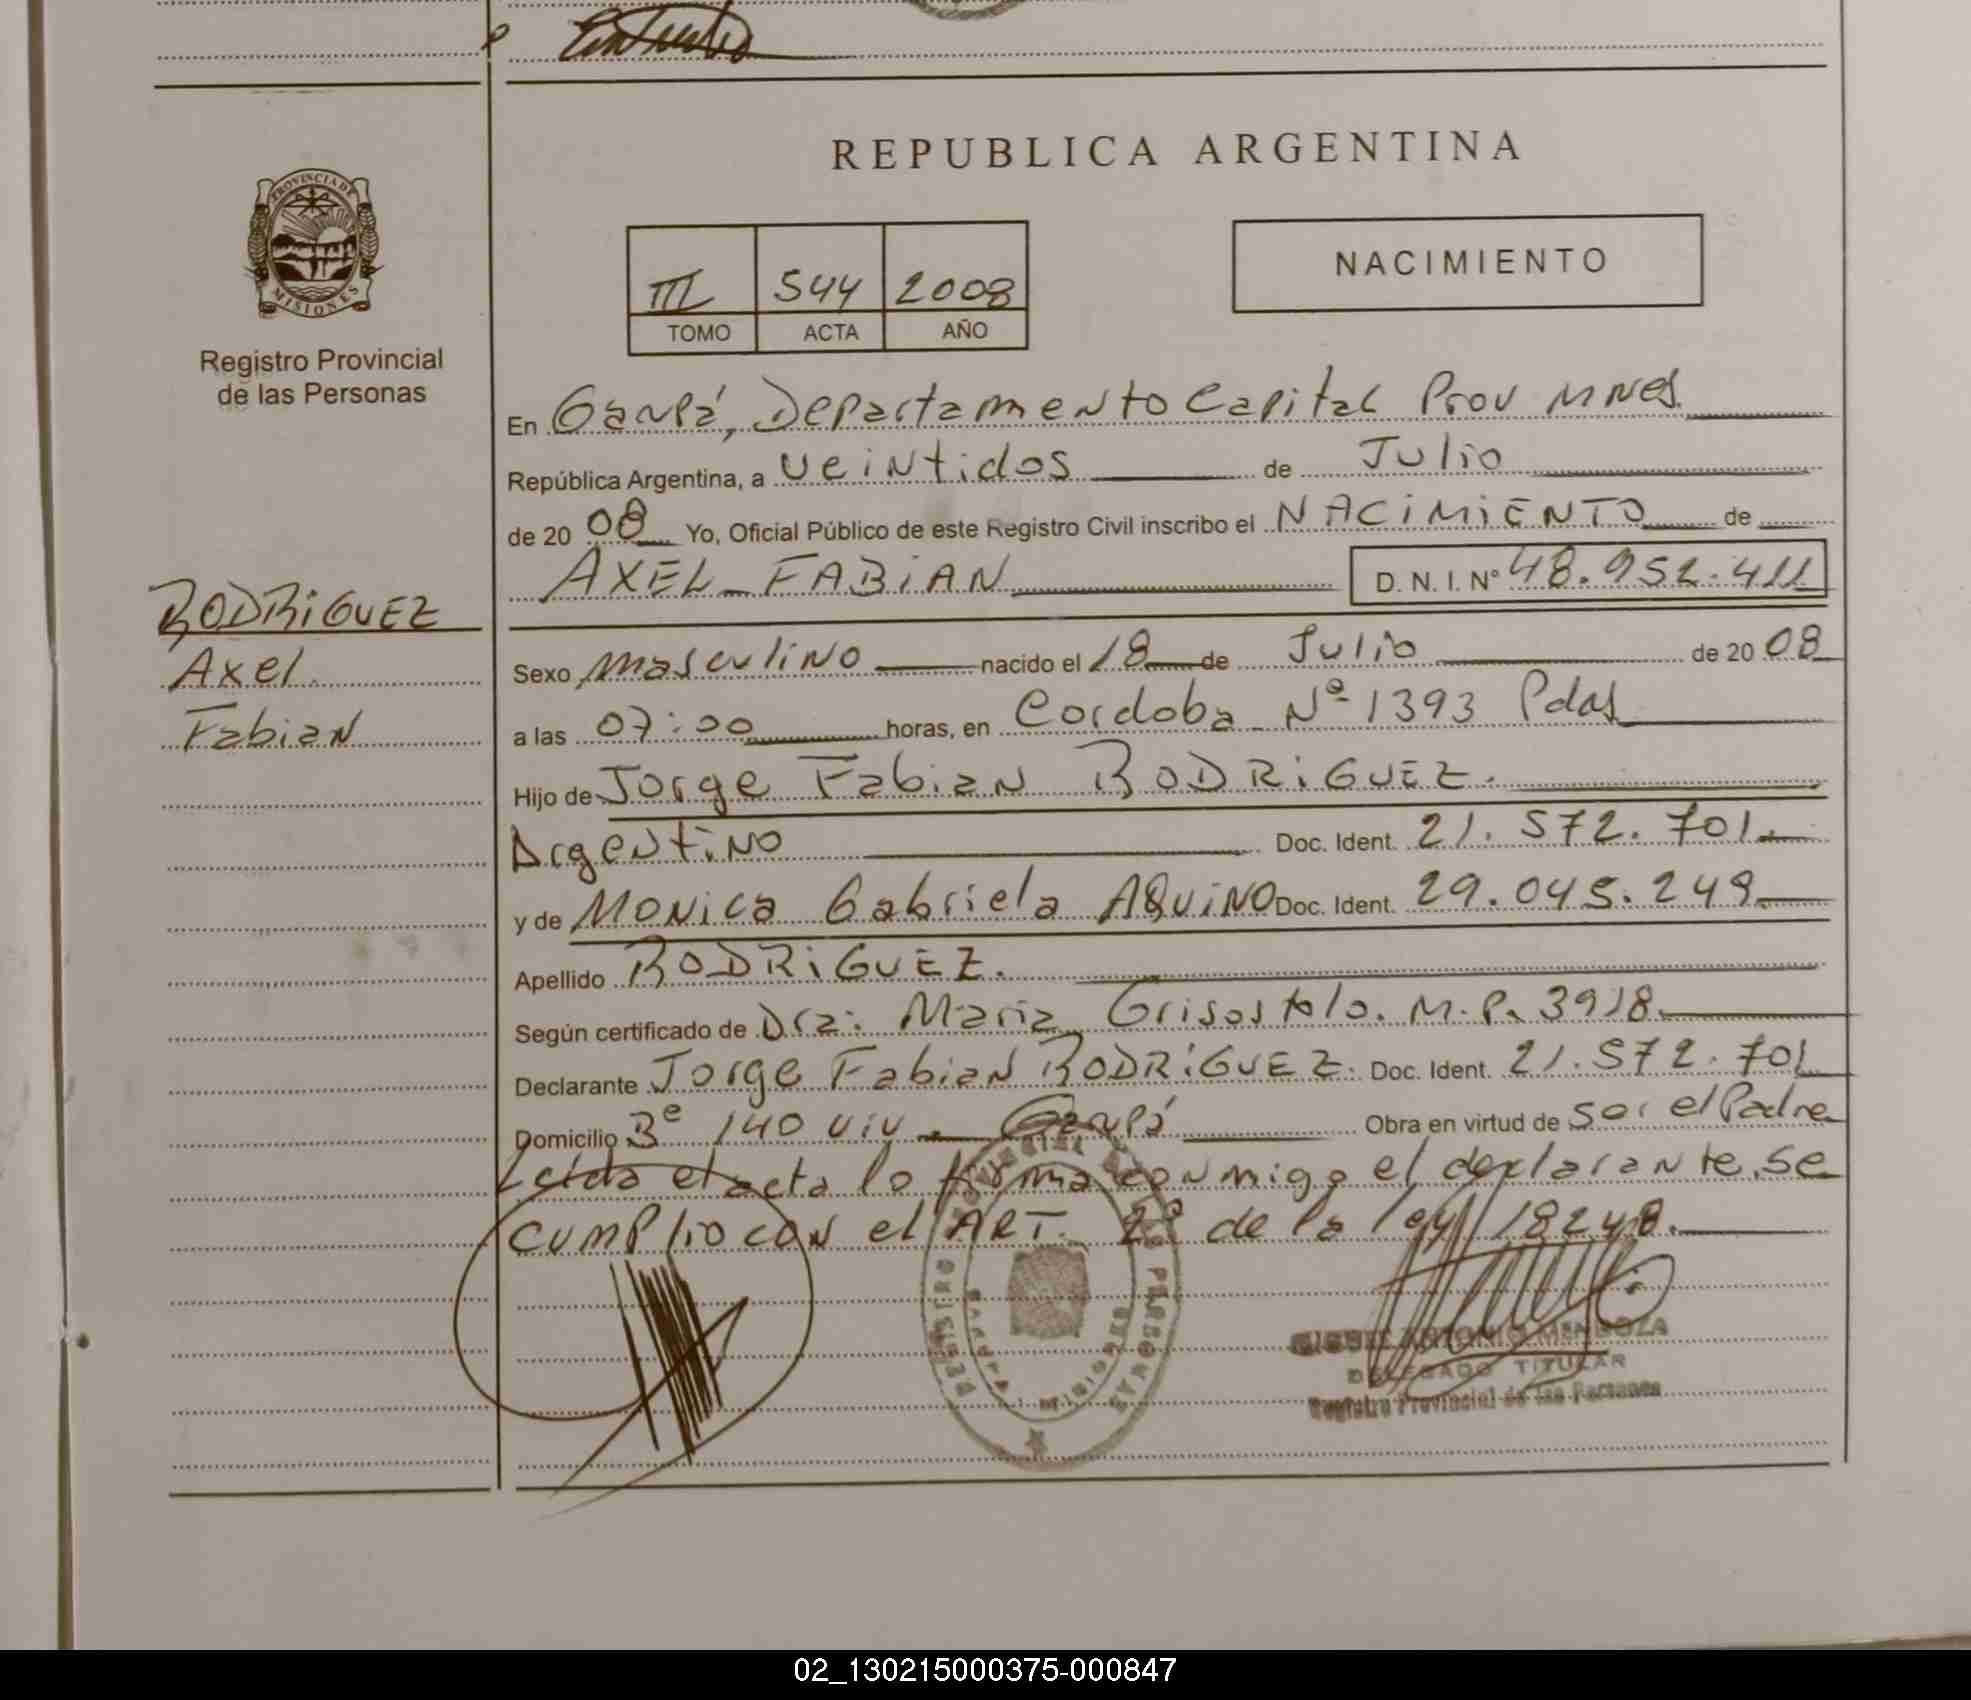 REPUBLICA ARGENTINA
PROVINCIA DE
MISIONES
Registro Provincial
de las Personas
III 544 2008
TOMO ACTA AÑO
NACIMIENTO
En Garupá, Departamento Capital Prov Mnes.
República Argentina, a veintidos de Julio
de 2008 Yo, Oficial Público de este Registro Civil inscribo el NACIMIENTO de
AXEL FABIAN D. N. I. Nº 48.952.411
RODRIGUEZ
Axel
Fabian
Sexo masculino nacido el 18 de Julio de 2008
a las 07:00 horas, en Cordoba Nº 1393 Pdas
Hijo de Jorge Fabian RODRIGUEZ.
Argentino Doc. Ident. 21.572.701.
y de Monica Gabriela AQUINO Doc. Ident. 29.045.249.
Apellido RODRIGUEZ.
Según certificado de Dra: Maria Grisostolo. M.P. 3918.
Declarante Jorge Fabian RODRIGUEZ. Doc. Ident. 21.572.701
Domicilio Bº 140 viv - Garupá Obra en virtud de ser el Padre
Leida el acta lo firma conmigo el declarante, se
cumplio con el ART. 2º de la ley 18248.
ANTONIO MENDOZA
DELEGADO TITULAR
Registro Provincial de las Personas
02_130215000375-000847